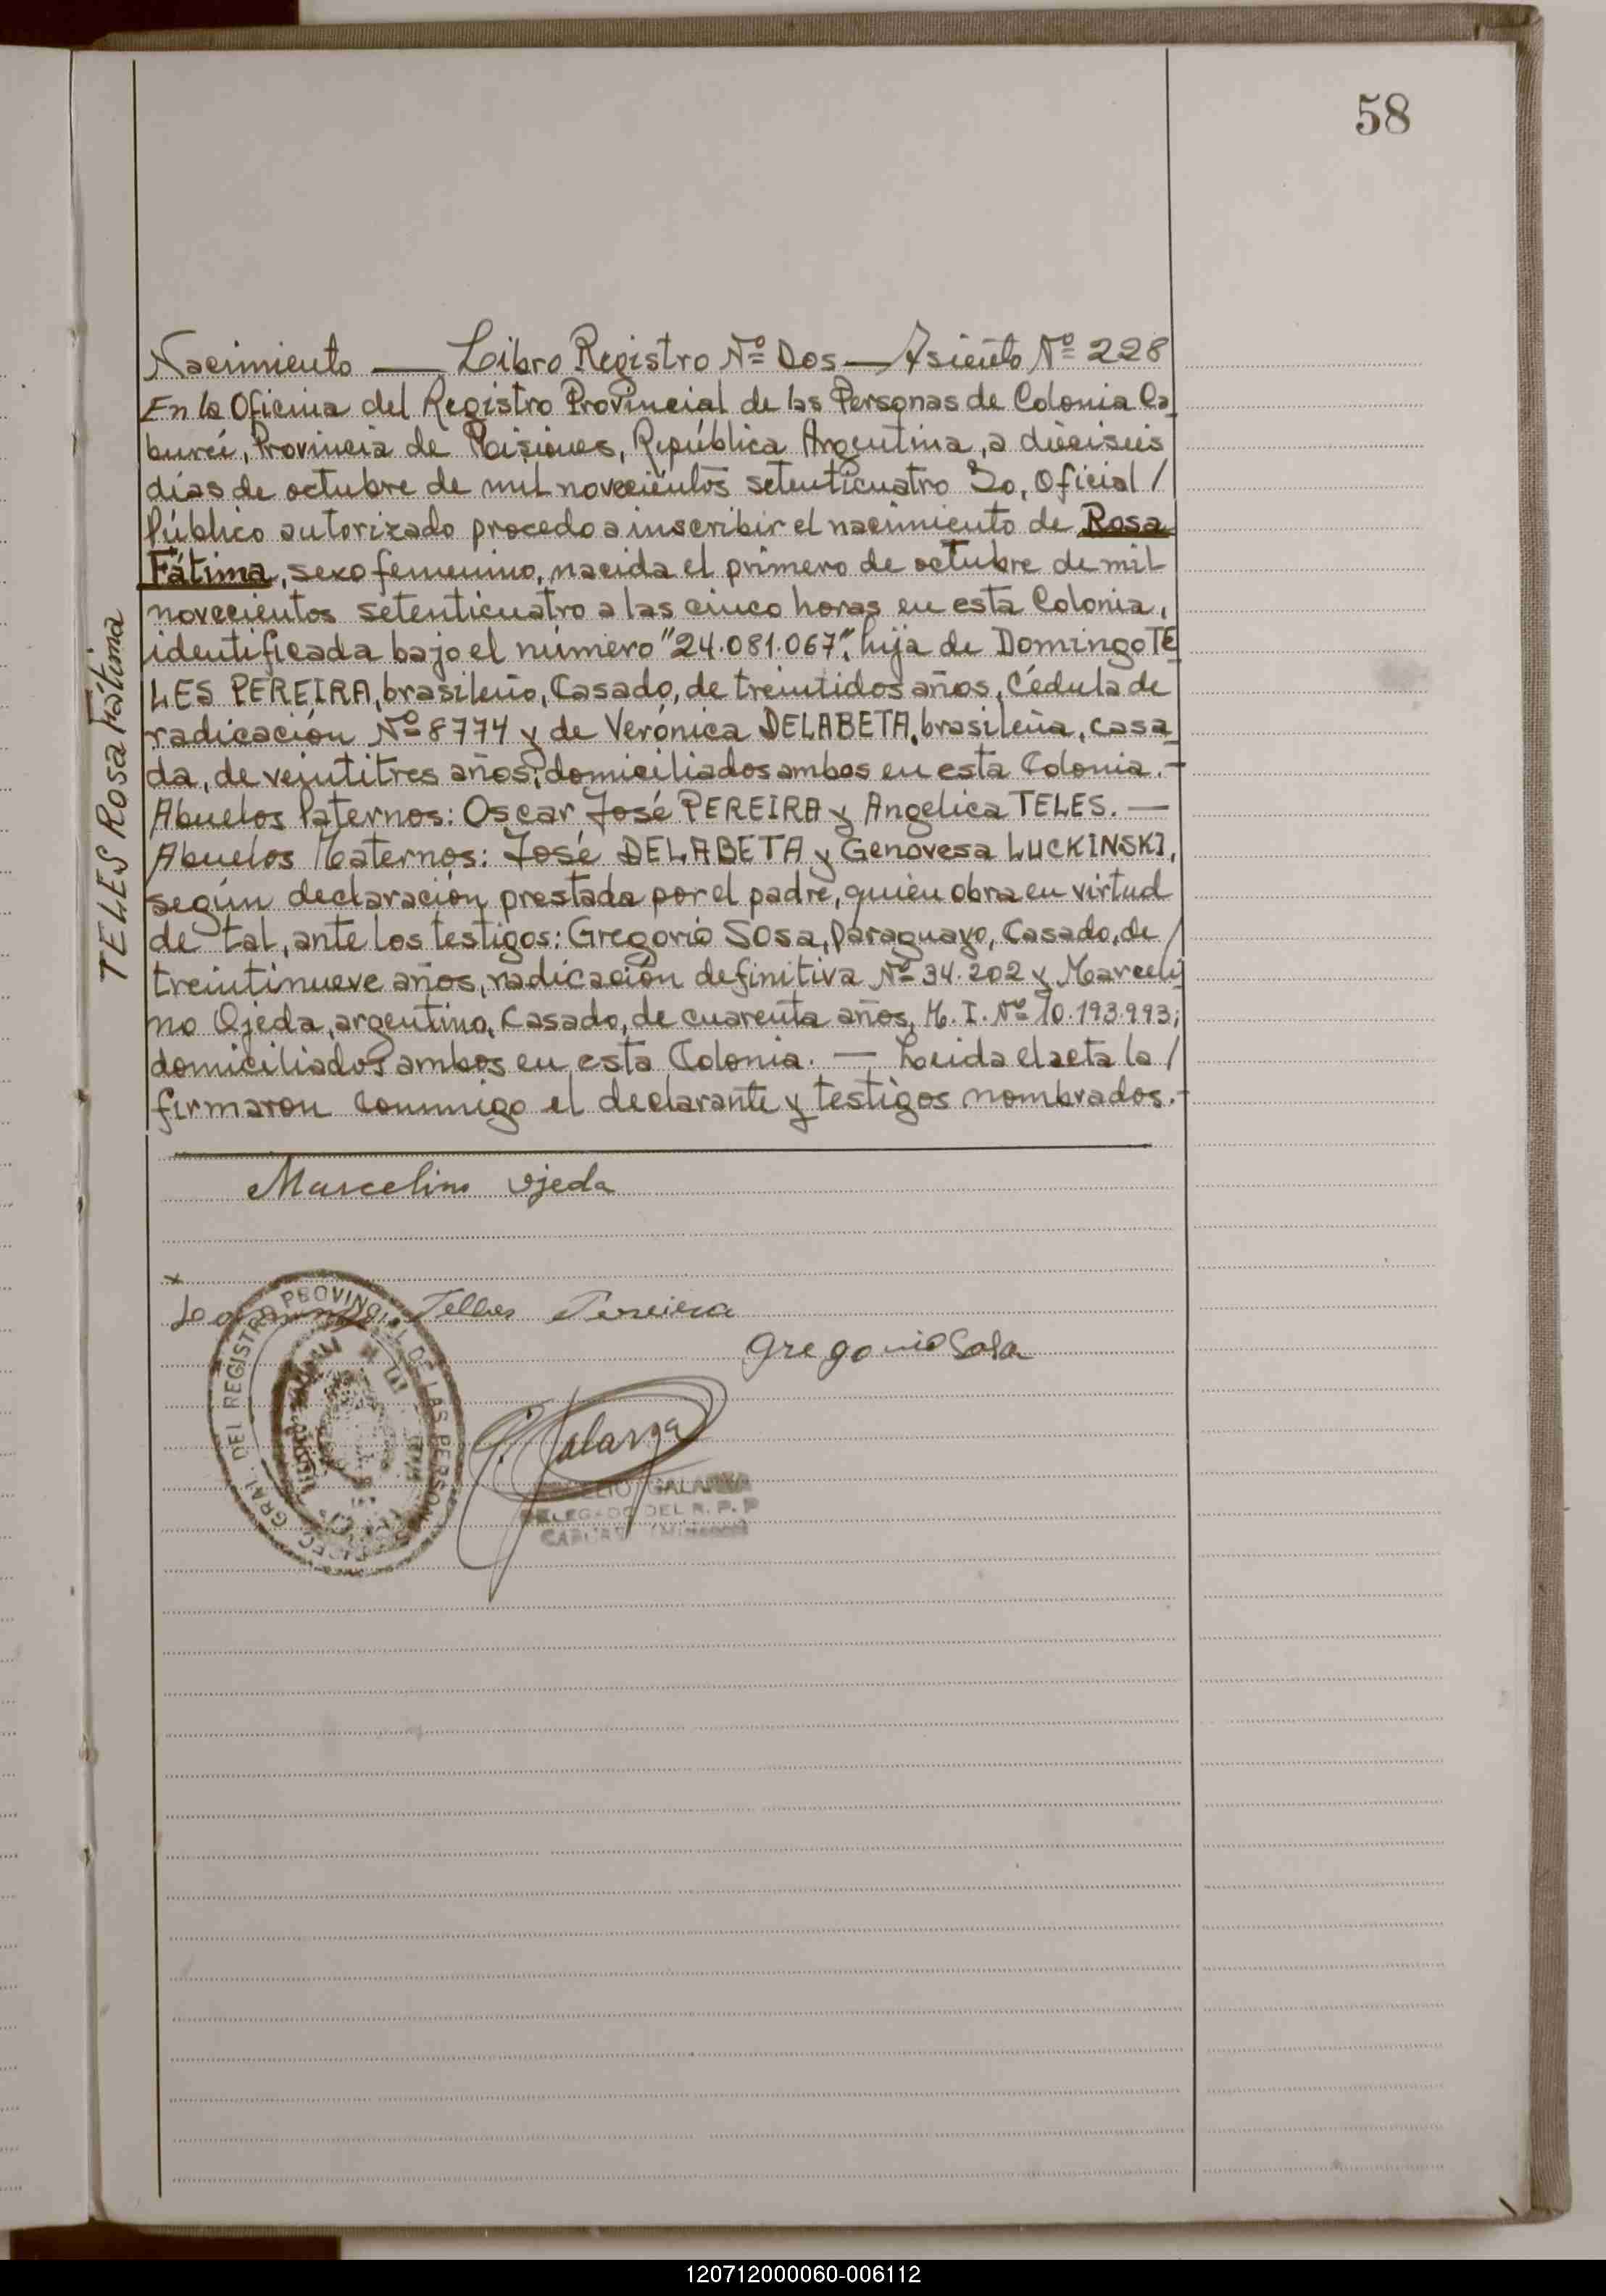 58
TELES Rosa Fátima
Nacimiento — Libro Registro Nº Dos — Asiento Nº 228
En la Oficina del Registro Provincial de las Personas de Colonia Ca
bureí, Provincia de Misiones, República Argentina, a dieciseis
días de octubre de mil novecientos setenticuatro Yo, Oficial /
Público autorizado procedo a inscribir el nacimiento de Rosa
Fátima, sexo femenino, nacida el primero de octubre de mil
novecientos setenticuatro a las cinco horas en esta Colonia,
identificada bajo el número "24.081.067", hija de Domingo TE
LES PEREIRA, brasileño, Casado, de treintidos años, Cédula de
radicación Nº 8774 y de Verónica DELABETA, brasileña, casa
da, de veintitres años; domiciliados ambos en esta Colonia. -
Abuelos Paternos: Oscar José PEREIRA y Angelica TELES. —
Abuelos Maternos: José DELABETA y Genovesa LUCKINSKI,
según declaración prestada por el padre, quien obra en virtud
de tal, ante los testigos: Gregorio Sosa, Paraguayo, Casado, de /
treintinueve años, radicación definitiva Nº 34.202 y Marceli
no Ojeda, argentino, Casado, de cuarenta años, M. I. Nº 10.193.993;
domiciliados ambos en esta Colonia. — Leida el acta la /
firmaron conmigo el declarante y testigos nombrados. -
Marcelino Ojeda
x
Telles Pereira
Gregorio Sosa
GRAL. DEL REGISTRO PROVINCIAL DE LAS PERSONAS
G. Galarza
GALARZA
DELEGADO DEL R. P. P
120712000060-006112